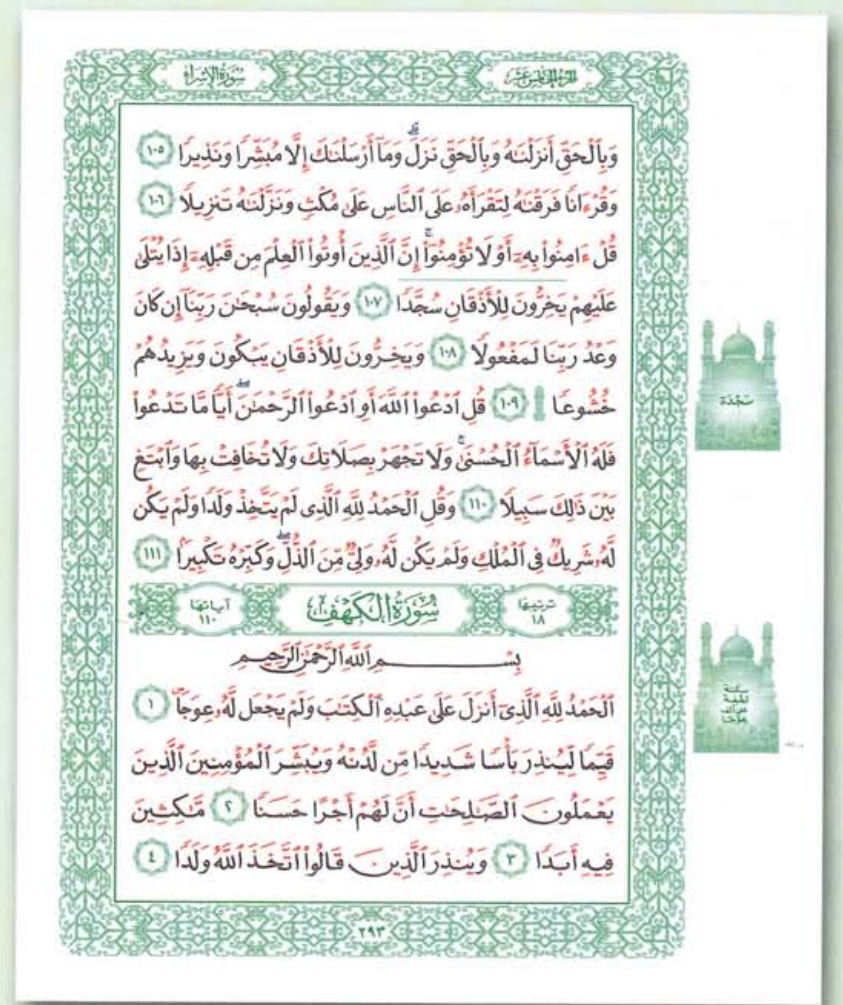 سُورَةُ الإِسْرَاءِ
الجُزْءُ الخَامِسَ عَشَرَ
وَبِٱلْحَقِّ أَنزَلْنَـٰهُ وَبِٱلْحَقِّ نَزَلَ ۗ وَمَآ أَرْسَلْنَـٰكَ إِلَّا مُبَشِّرًا وَنَذِيرًا ١٠٥
وَقُرْءَانًا فَرَقْنَـٰهُ لِتَقْرَأَهُۥ عَلَى ٱلنَّاسِ عَلَىٰ مُكْثٍ وَنَزَّلْنَـٰهُ تَنزِيلًا ١٠٦
قُلْ ءَامِنُوا۟ بِهِۦٓ أَوْ لَا تُؤْمِنُوٓا۟ ۚ إِنَّ ٱلَّذِينَ أُوتُوا۟ ٱلْعِلْمَ مِن قَبْلِهِۦٓ إِذَا يُتْلَىٰ
عَلَيْهِمْ يَخِرُّونَ لِلْأَذْقَانِ سُجَّدًا ١٠٧ وَيَقُولُونَ سُبْحَـٰنَ رَبِّنَآ إِن كَانَ
وَعْدُ رَبِّنَا لَمَفْعُولًا ١٠٨ وَيَخِرُّونَ لِلْأَذْقَانِ يَبْكُونَ وَيَزِيدُهُمْ
خُشُوعًا ١٠٩ قُلِ ٱدْعُوا۟ ٱللَّهَ أَوِ ٱدْعُوا۟ ٱلرَّحْمَـٰنَ ۖ أَيًّا مَّا تَدْعُوا۟
فَلَهُ ٱلْأَسْمَآءُ ٱلْحُسْنَىٰ ۚ وَلَا تَجْهَرْ بِصَلَاتِكَ وَلَا تُخَافِتْ بِهَا وَٱبْتَغِ
بَيْنَ ذَٰلِكَ سَبِيلًا ١١٠ وَقُلِ ٱلْحَمْدُ لِلَّهِ ٱلَّذِى لَمْ يَتَّخِذْ وَلَدًا وَلَمْ يَكُن
لَّهُۥ شَرِيكٌ فِى ٱلْمُلْكِ وَلَمْ يَكُن لَّهُۥ وَلِىٌّ مِّنَ ٱلذُّلِّ ۖ وَكَبِّرْهُ تَكْبِيرًۢا ١١١
ترتيبها ١٨
سُورَةُ الكَهْفِ
آياتها ١١٠
بِسْمِ ٱللَّهِ ٱلرَّحْمَـٰنِ ٱلرَّحِيمِ
ٱلْحَمْدُ لِلَّهِ ٱلَّذِىٓ أَنزَلَ عَلَىٰ عَبْدِهِ ٱلْكِتَـٰبَ وَلَمْ يَجْعَل لَّهُۥ عِوَجَا ۜ ١
قَيِّمًا لِّيُنذِرَ بَأْسًا شَدِيدًا مِّن لَّدُنْهُ وَيُبَشِّرَ ٱلْمُؤْمِنِينَ ٱلَّذِينَ
يَعْمَلُونَ ٱلصَّـٰلِحَـٰتِ أَنَّ لَهُمْ أَجْرًا حَسَنًا ٢ مَّـٰكِثِينَ
فِيهِ أَبَدًا ٣ وَيُنذِرَ ٱلَّذِينَ قَالُوا۟ ٱتَّخَذَ ٱللَّهُ وَلَدًا ٤
٢٩٣
سَجْدَة
سكتة
لطيفة
على ألف
عوجا